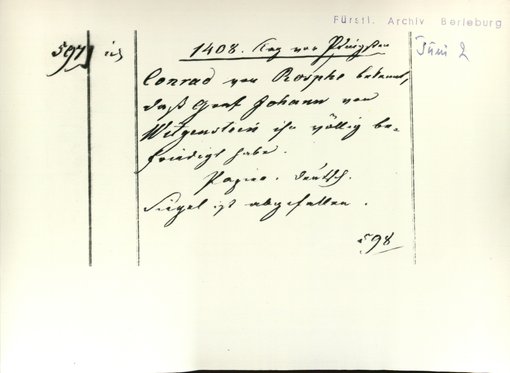 Fürstl. Archiv Berleburg
597
1408. Tag vor Pfingsten
Juni 2
Conrad von Rosphe bekennt,
daß Graf Johann von
Witgenstein ihn völlig be-
friedigt habe.
Papier. Deutsch.
Siegel ist abgefallen.
598